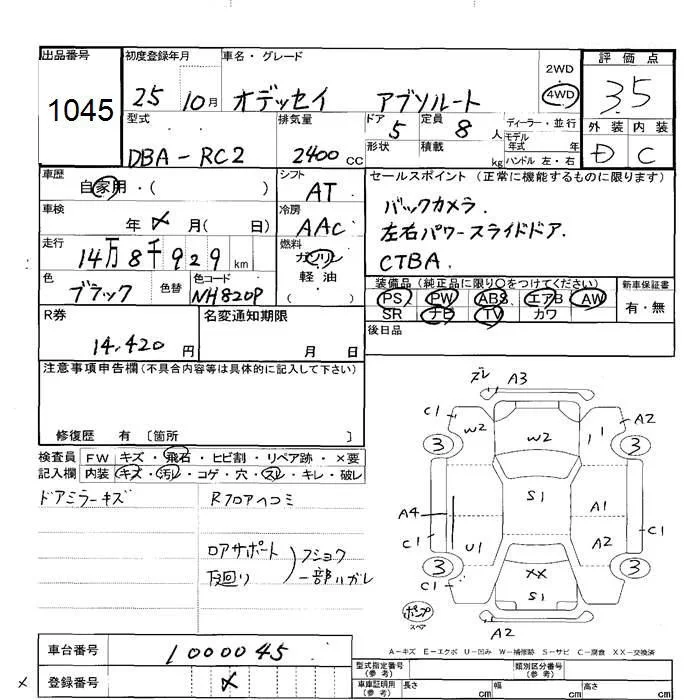 出品番号
1045
初度登録年月
25 10月
車名・グレード
オデッセイ アブソルート
2WD
4WD
評価点
3.5
外装 内装
D C
型式
DBA-RC2
排気量
2400 CC
ドア 5
形状
定員 8 人
積載 kg
ディーラー・並行
モデル年式 年
ハンドル 左・右
車歴
自家用・( )
シフト
AT
セールスポイント (正常に機能するものに限ります)
バックカメラ.
左右パワースライドドア.
CTBA.
車検
年 メ 月( 日)
冷房
AAC
走行
14万8千929 km
燃料
ガソリン
軽油
( )
色
ブラック
色替
色コード
NH820P
装備品 (純正品に限り○をつけてください)
PS PW ABS エアB AW
SR ナビ TV カワ
新車保証書
有・無
後日品
R券
14,420 円
名変通知期限
月 日
注意事項申告欄(不具合内容等は具体的に記入して下さい)
修復歴 有 〔箇所 〕
検査員記入欄
FW キズ・飛石・ヒビ割・リペア跡・×要
内装 キズ・汚レ・コゲ・穴・スレ・キレ・破レ
ドアミラーキズ
Rフロアヘコミ
ロアサポート
下廻り
フショク
一部ハガレ
ズレ A3
C1 W2 W2 A2
3 3
S1
A4 A1
C1 U1 A2 C1
3 XX 3
C1 S1
ポンプ
スペア
A2
A-キズ E-エクボ U-凹み W-補修跡 S-サビ C-腐食 XX-交換済
車台番号
1000045
登録番号
メ
型式指定番号
(参考)
類別区分番号
(参考)
車庫証明用
(参考)
長さ cm 幅 cm 高さ cm